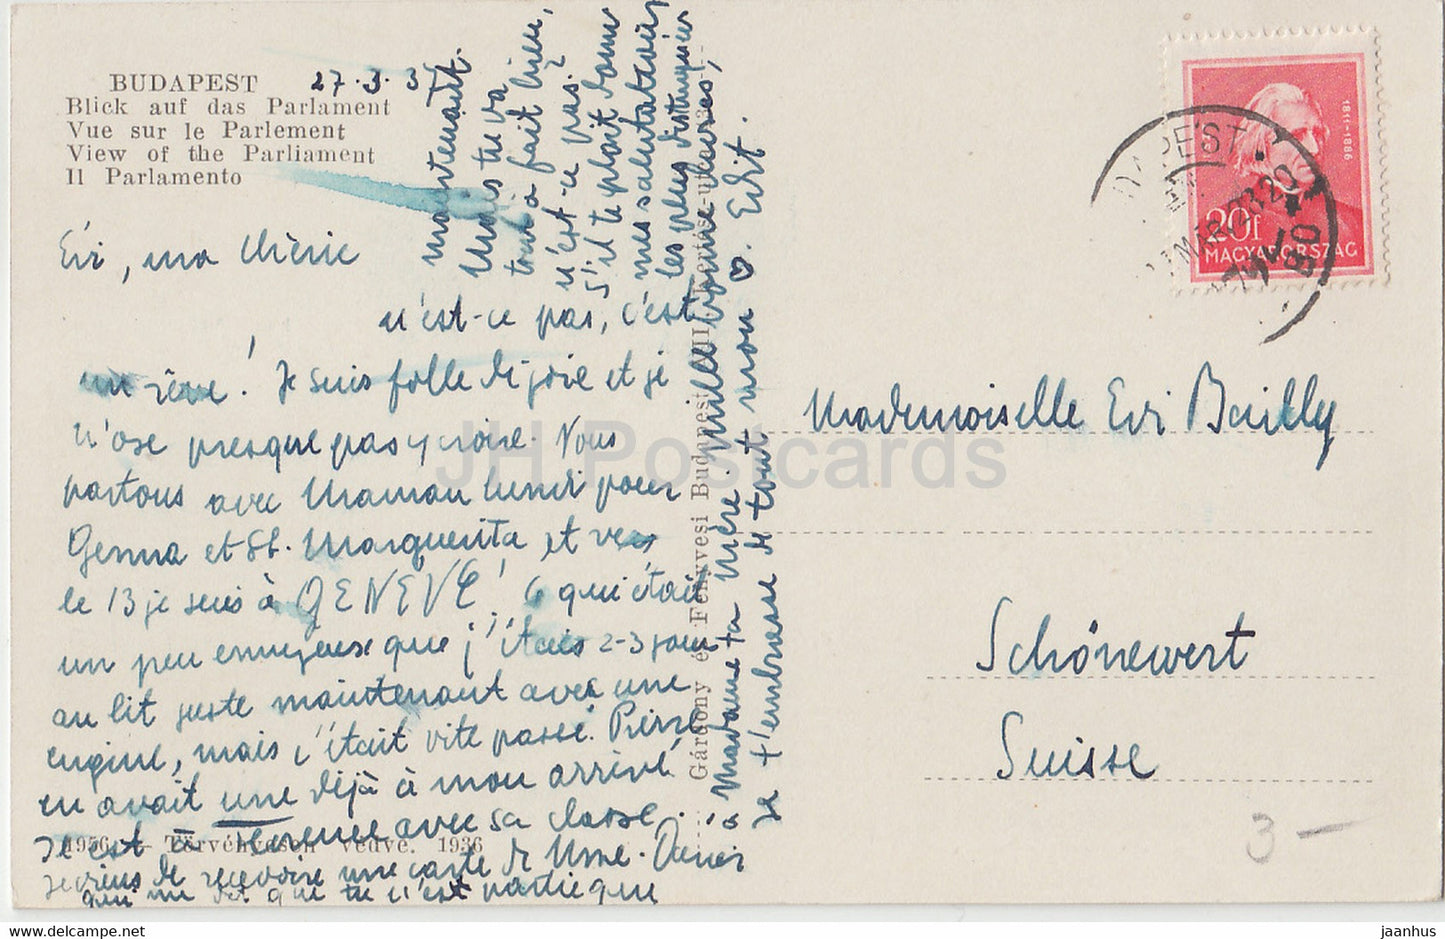 BUDAPEST
Blick auf das Parlament
Vue sur le Parlement
View of the Parliament
Il Parlamento
27.3.3
Evi, ma chérie
n'est-ce pas, c'est
un rêve! Je suis folle de joie et je
n'ose presque pas y croire. Nous
partons avec Maman lundi pour
Genua et St. Marguerita et vers
le 13 je suis à GENEVE! Ce qui était
un peu ennuyeux que j'étais 2-3 jours
au lit juste maintenant avec une
engine, mais c'était vite passé. Pierre
en avait une déjà à mon arrivé.
Je est à Florence avec sa classe.
Je viens de recevoire une carte de Mme.
qui me dit que tu n'est partie que
maintenant.
Mais tu va
tout a fait bien,
n'est-ce pas?
S'il te plait donne
mes salutations
les plus distinguées
à Madame ta Mère. Mille bonnes choses,
je t'embrasse de tout mon ♡. Edit.
Gárdony és Fényvesi Budapest, VII.
1956 — Törvényesen védve. 1936
20f
MAGYARORSZAG
1811-1886
Mademoiselle Evi Bailly
Schönewert
Suisse
3 —
JH Postcards
www.hippostcard.com
jaanhus